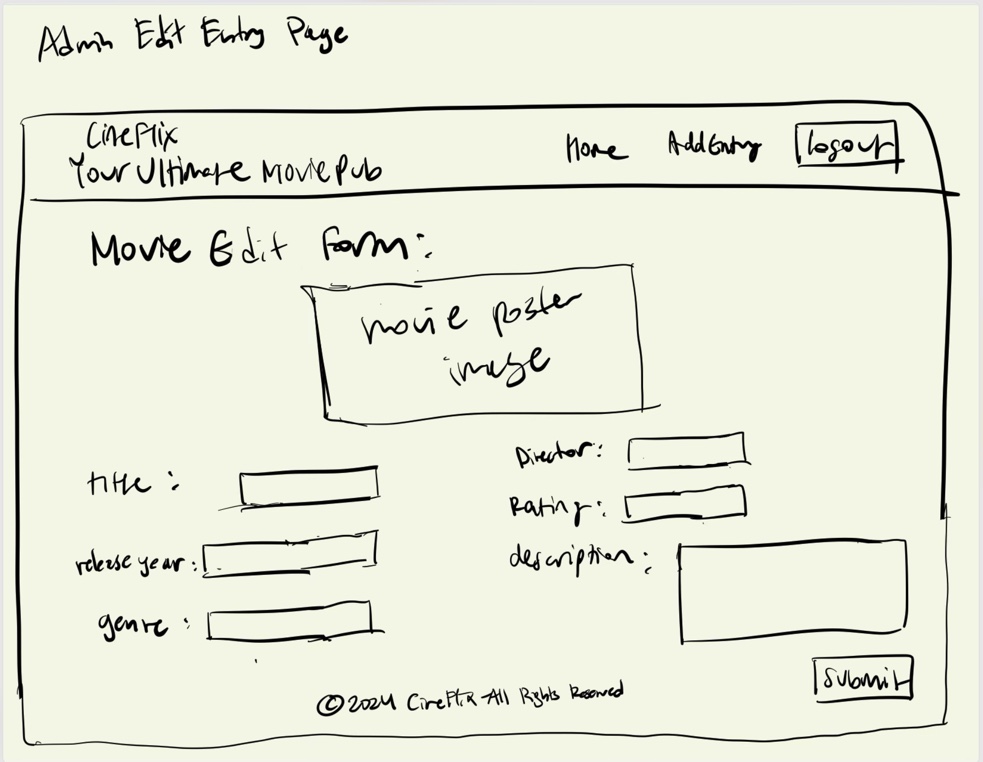 Admin Edit Entry Page
CineFlix
Your Ultimate MoviePub
Home AddEntry Logout
Movie Edit Form:
movie poster
image
title :
release year :
genre :
Director:
Rating:
description:
Submit
©2024 CineFlix All Rights Reserved